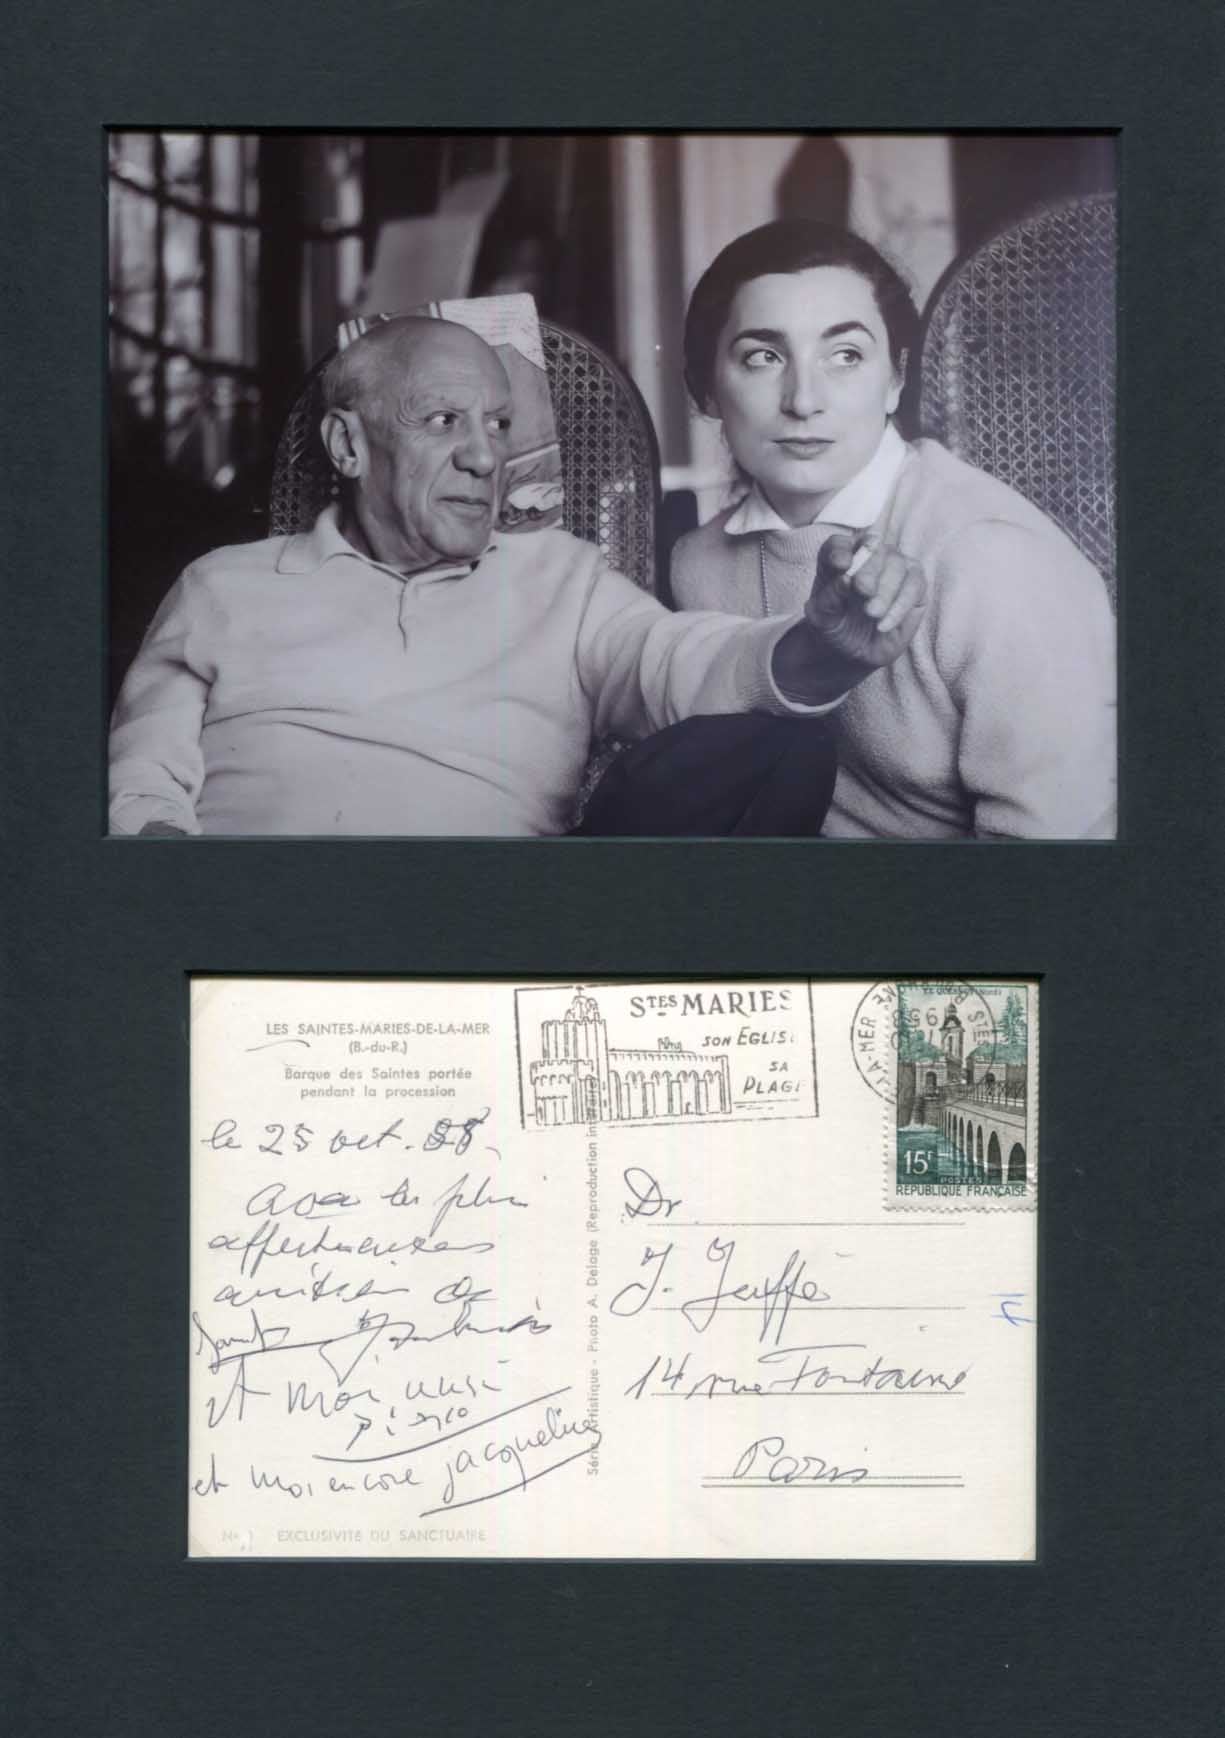 LES SAINTES-MARIES-DE-LA-MER
(B.-du-R.)
Barque des Saintes portée
pendant la procession
le 25 oct. 58,
avec les plus
affectueuses
amitiés de
et moi aussi
Picasso
et moi encore jacqueline
No.
EXCLUSIVITÉ DU SANCTUAIRE
Artistique - Photo A. Delage (Reproduction
STES MARIES
SON EGLISE
SA
PLAGE
LA-MER
STES
15F
POSTES
REPUBLIQUE FRANÇAISE
Dr
J. Jaffé
14 rue Fontaine
Paris